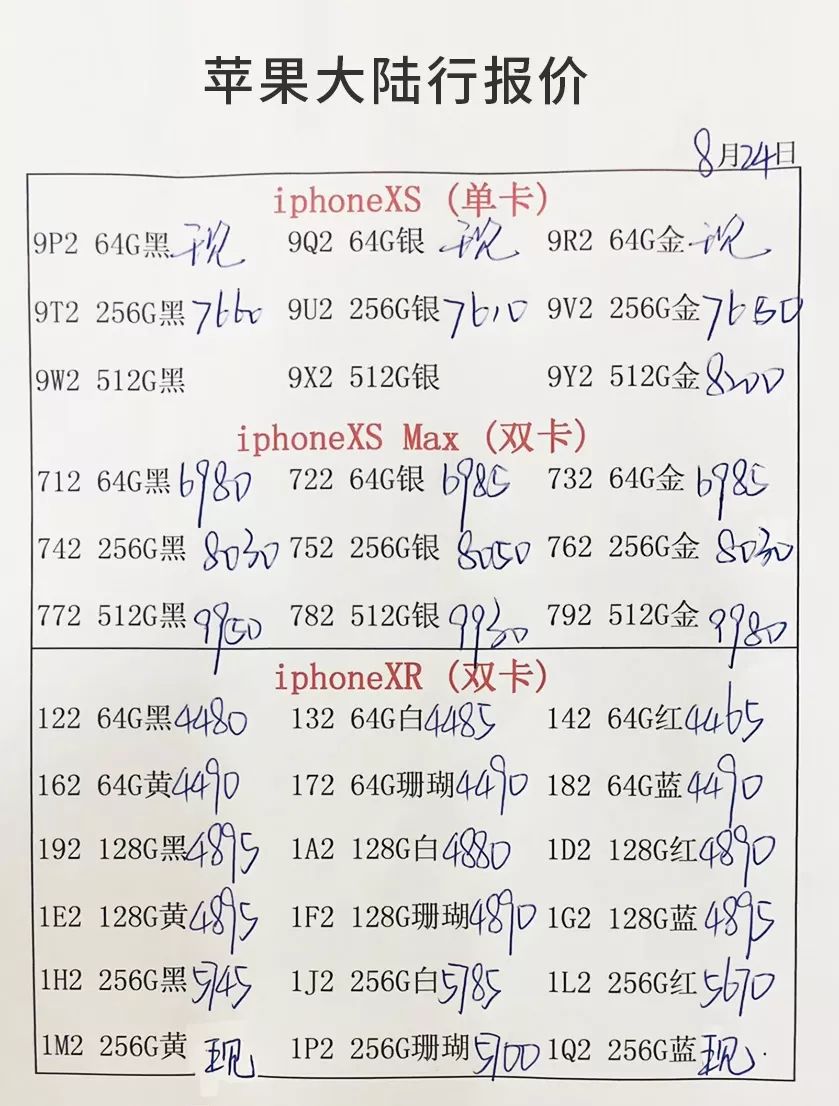 苹果大陆行报价
8月24日
iphoneXS (单卡)
9P2 64G黑 现 9Q2 64G银 现 9R2 64G金 现
9T2 256G黑 7660 9U2 256G银 7610 9V2 256G金 7650
9W2 512G黑 9X2 512G银 9Y2 512G金 8200
iphoneXS Max (双卡)
712 64G黑 6980 722 64G银 6985 732 64G金 6985
742 256G黑 8030 752 256G银 8050 762 256G金 8030
772 512G黑 9950 782 512G银 9930 792 512G金 9980
iphoneXR (双卡)
122 64G黑 4480 132 64G白 4485 142 64G红 4465
162 64G黄 4490 172 64G珊瑚 4490 182 64G蓝 4490
192 128G黑 4895 1A2 128G白 4880 1D2 128G红 4890
1E2 128G黄 4895 1F2 128G珊瑚 4890 1G2 128G蓝 4895
1H2 256G黑 5745 1J2 256G白 5785 1L2 256G红 5670
1M2 256G黄 现 1P2 256G珊瑚 5700 1Q2 256G蓝 现